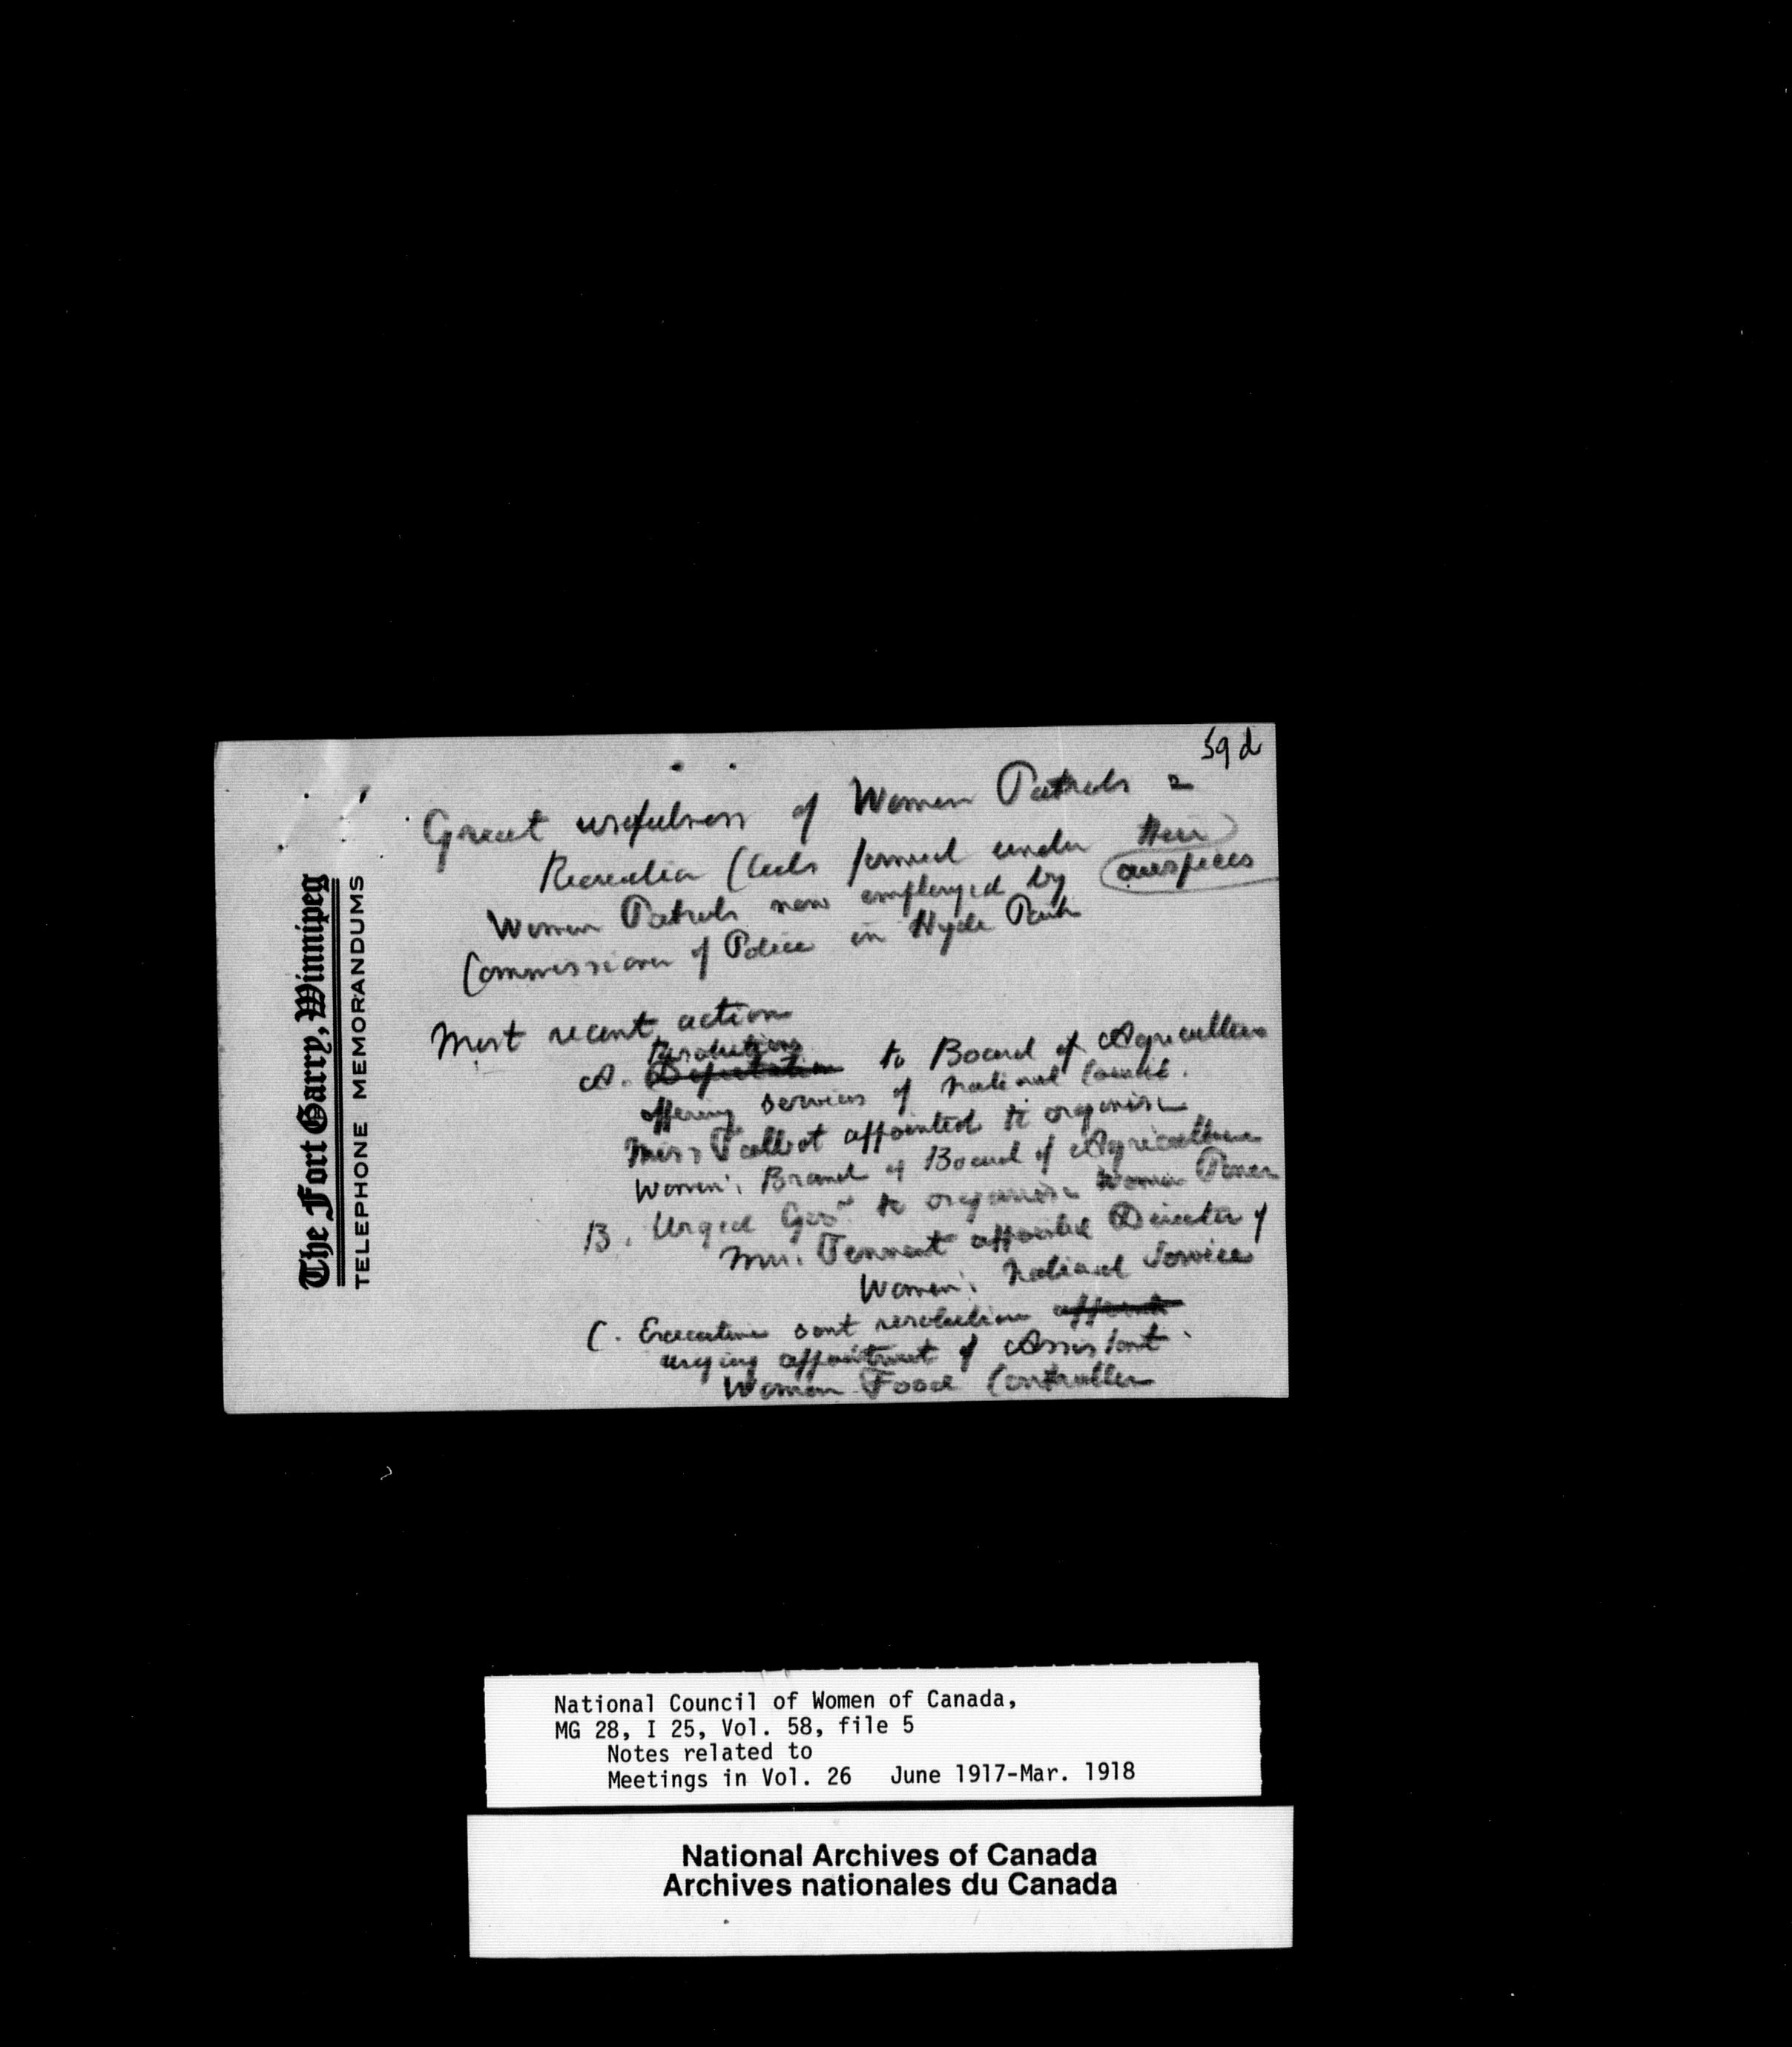 59 d
The Fort Garry, Winnipeg
TELEPHONE MEMORANDUMS
Great usefulness of Women Patrols &
Recreation Clubs formed under their
auspices
Women Patrols now employed by
Commissioner of Police in Hyde Park
Most recent action
Resolutions
A. Deputation to Board of Agriculture
offering services of National Council.
Miss Talbot appointed to organise
Women's Branch of Board of Agriculture
B. Urged Govt to organise Women Power
Mrs. Tennant appointed Director of
Women's National Service
C. Executive sent resolution
urging appointment of Assistant
Woman Food Controller
National Council of Women of Canada,
MG 28, I 25, Vol. 58, file 5
Notes related to
Meetings in Vol. 26 June 1917-Mar. 1918
National Archives of Canada
Archives nationales du Canada